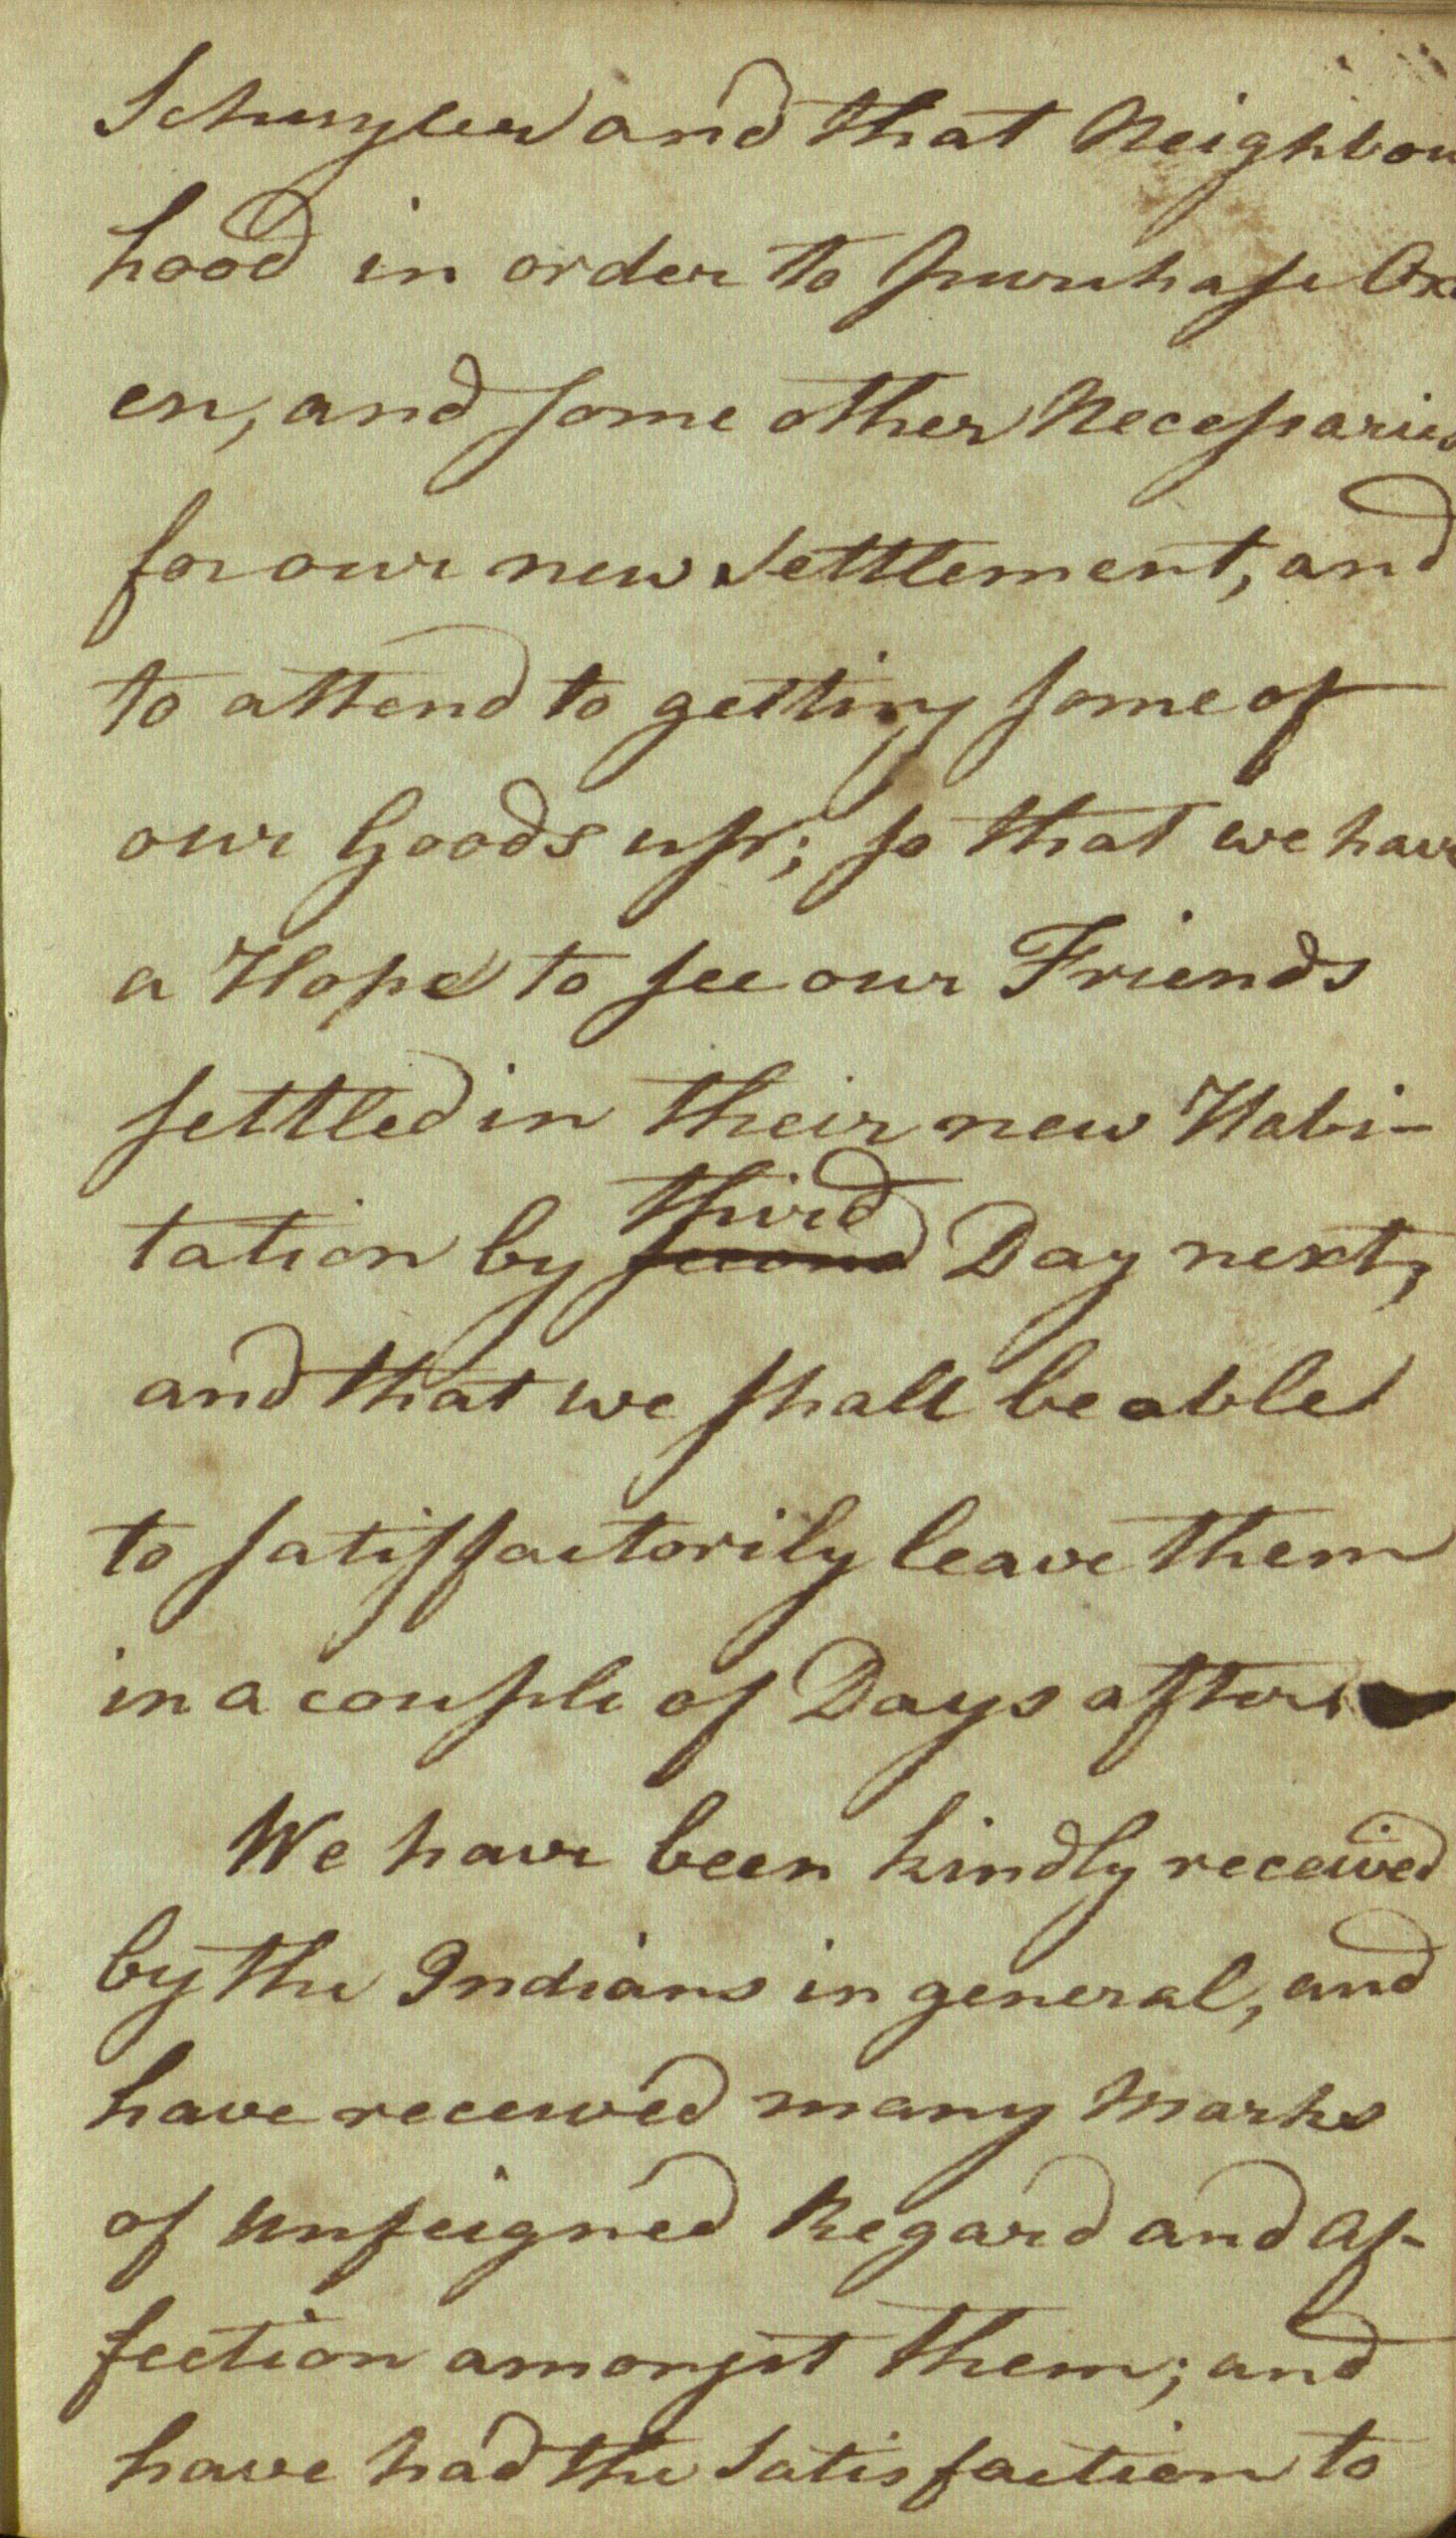 Schuyler and that Neighbou
hood in order to purchase Ox
en, and some other Necessaries
for our new Settlement, and
to attend to getting some of
our Goods up; so that we have
a Hope to see our Friends
settled in their new Habi-
third
tation by second Day next,
and that we shall be able
to satisfactorily leave them
in a couple of Days after
We have been kindly received
by the Indians in general, and
have received many Marks
of unfeigned Regard and Af-
fection amongst them; and
have had the Satisfaction to